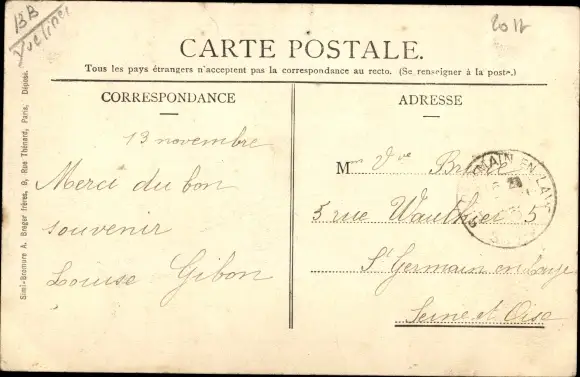 13B
2012
CARTE POSTALE.
Tous les pays étrangers n'acceptent pas la correspondance au recto. (Se renseigner à la poste.)
CORRESPONDANCE
13 novembre
Merci du bon
souvenir
Louise Gibon
ADRESSE
Mme Vve
5 rue Wauthier 5
St Germain en Laye
Seine et Oise
MAIN EN LAYE
Simi-Bromure A. Breger frères, 9, Rue Thénard, Paris, Déposé.